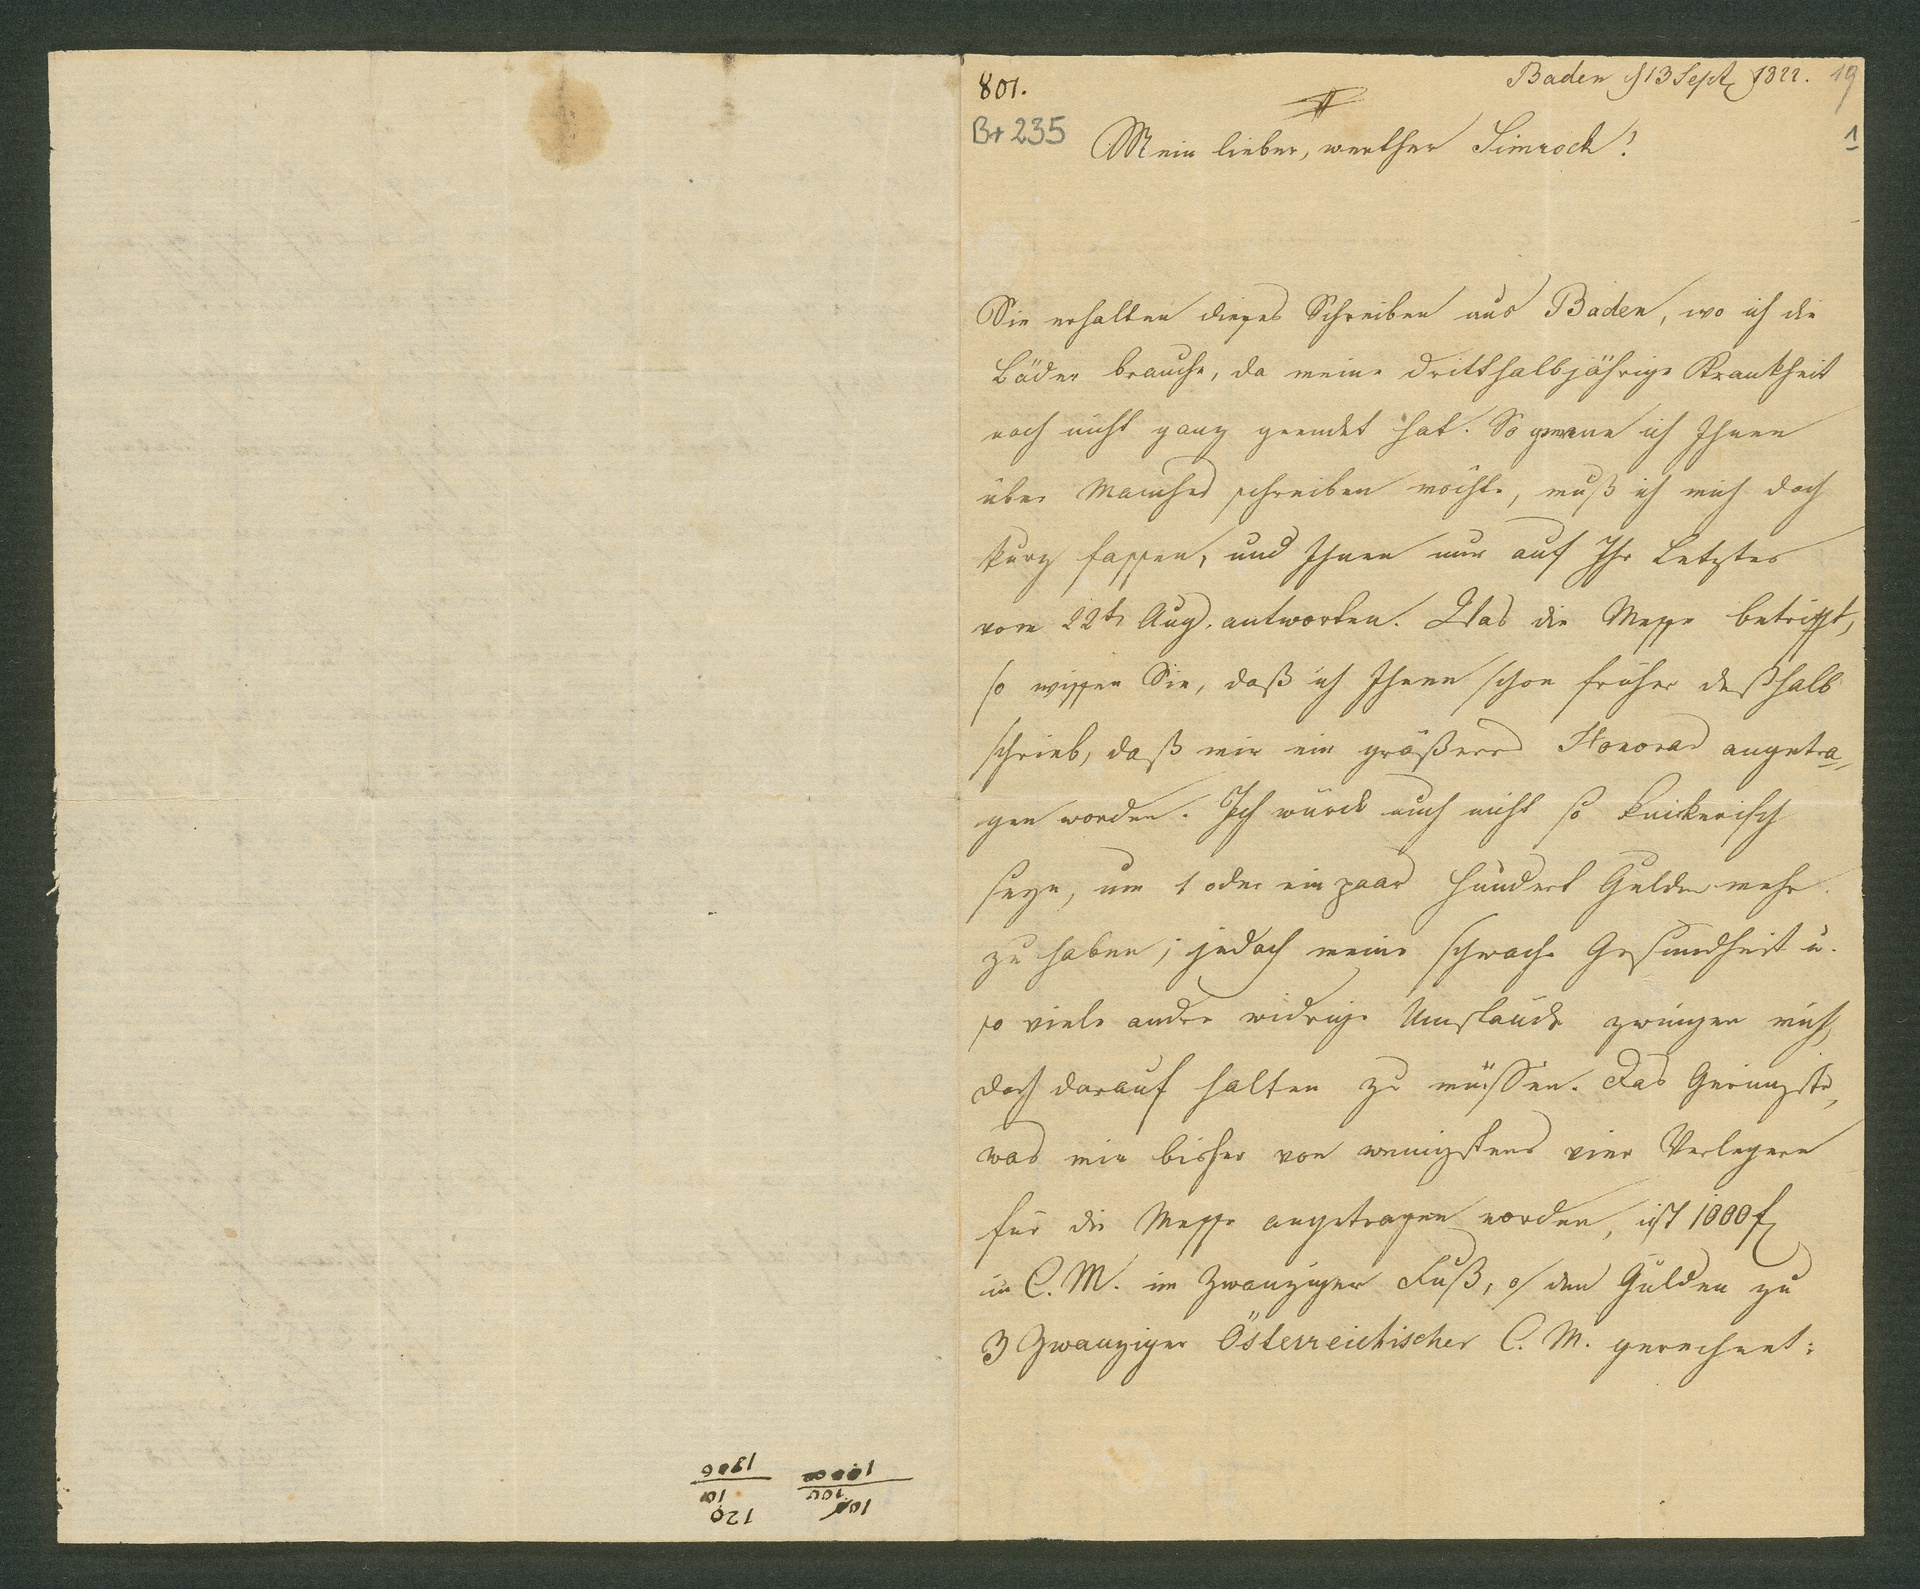 801.
Baden d 13 Sept 1822. 19
B+ 235
1
Mein lieber, werther Simrock!
Sie erhalten dieses Schreiben aus Baden, wo ich die
Bäder brauche, da meine dritthalbjährige Krankheit
noch nicht ganz geendet hat. So gerne ich Ihnen
über Manches schreiben möchte, muß ich mich doch
kurz fassen, und Ihnen nur auf Ihr Letztes
vom 22t Aug. antworten. Was die Messe betrifft,
so wissen Sie, daß ich Ihnen schon früher deßhalb
schrieb, daß mir ein größeres Honorar angetra-
gen worden. Ich würde auch nicht so knickerisch
seyn, um 1 oder ein paar hundert Gulden mehr
zu haben; jedoch meine schwache Gesundheit u.
so viele andre widrige Umstände zwingen mich,
doch darauf halten zu müssen. Das Geringste,
was mir bisher von wenigstens vier Verlegern
für die Messe angetragen worden, ist 1000 f
in C. M. im Zwanziger Fuß, o/ den Gulden zu
3 Zwanziger Österreichischer C. M. gerechnet:
120
10
100